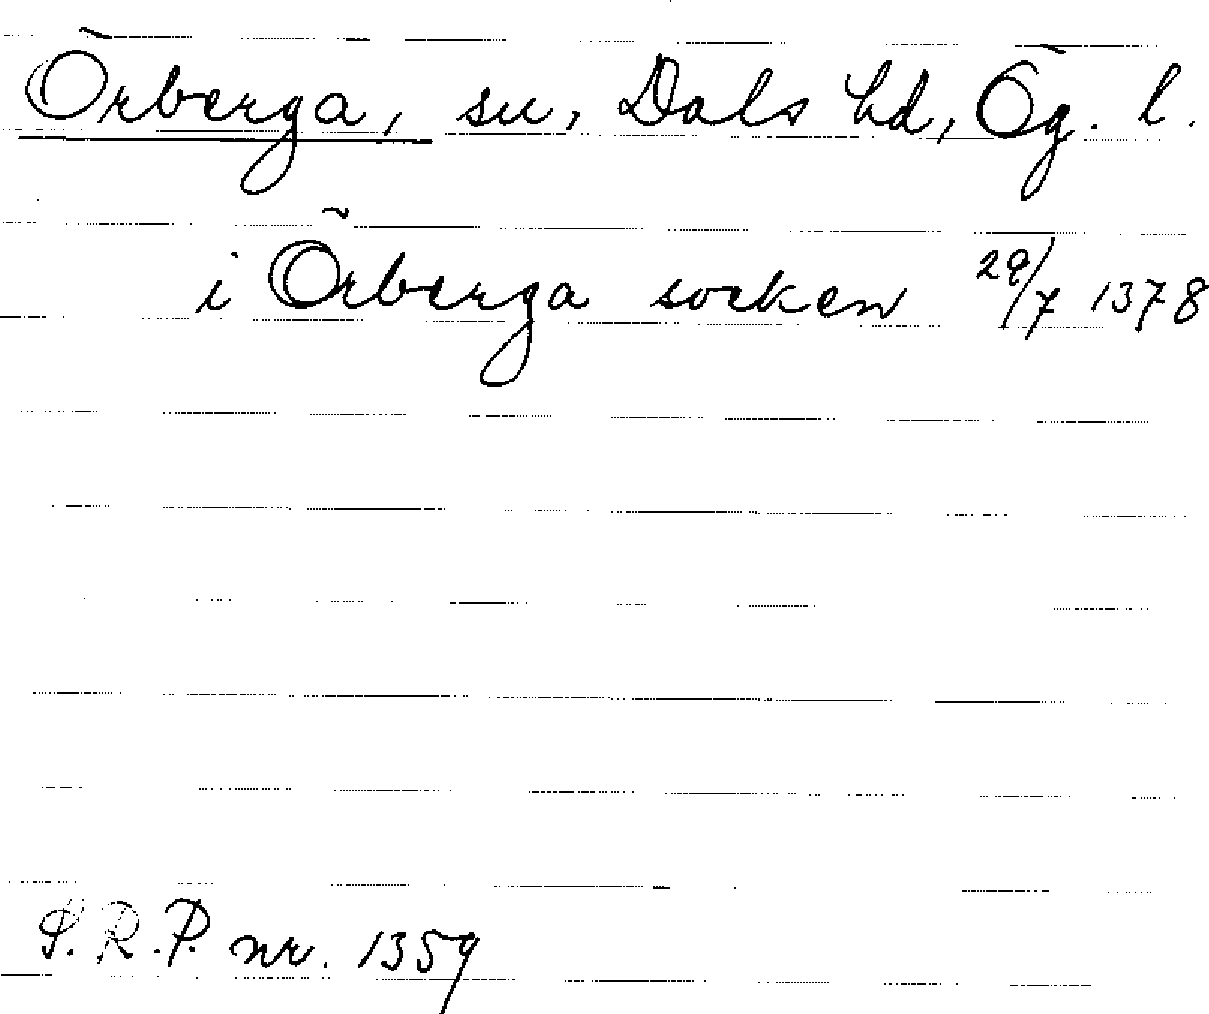 Örberga, sn, Dals hd, Ög. l.
i Örberga socken 29/7 1378
S.R.P. nr. 1359